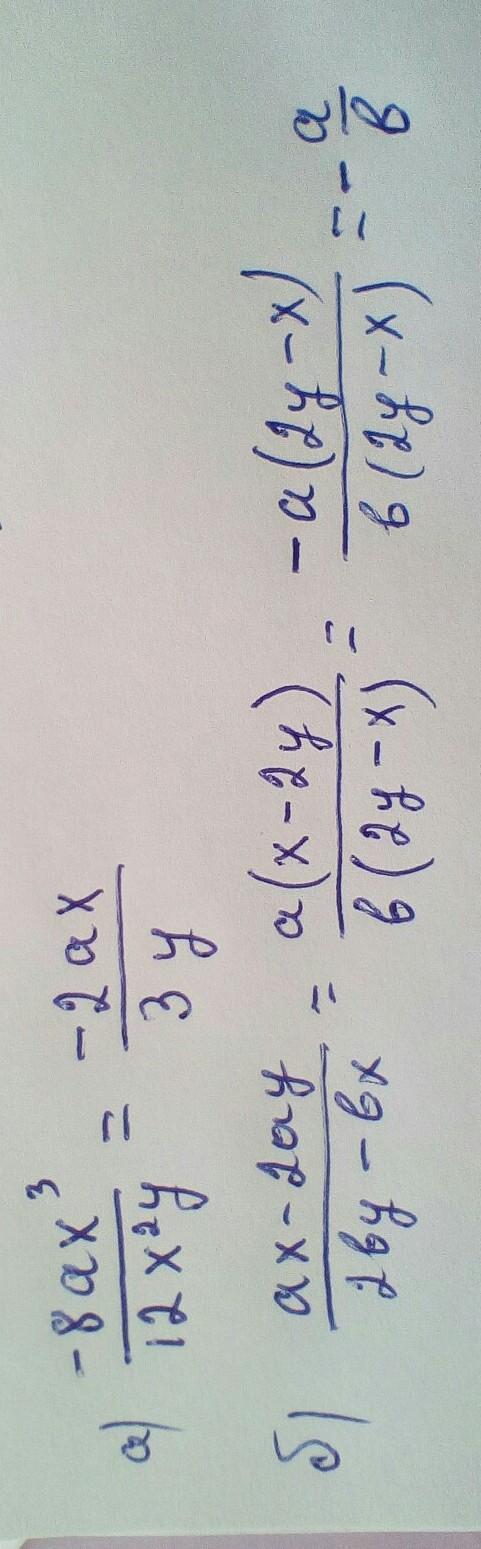 а) -8ax³/12x²y = -2ax/3y
б) ax-2ay/2by-bx = a(x-2y)/b(2y-x) = -a(2y-x)/b(2y-x) = -a/b